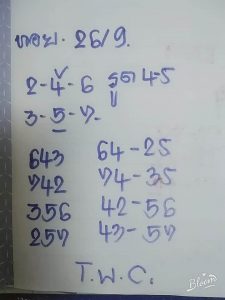 หวย. 26/9.
2-4-6 รูด 4-5
3-5-7-
643 64-25
742 74-35
356 42-56
257 43-57
T.W.C.
Bloom